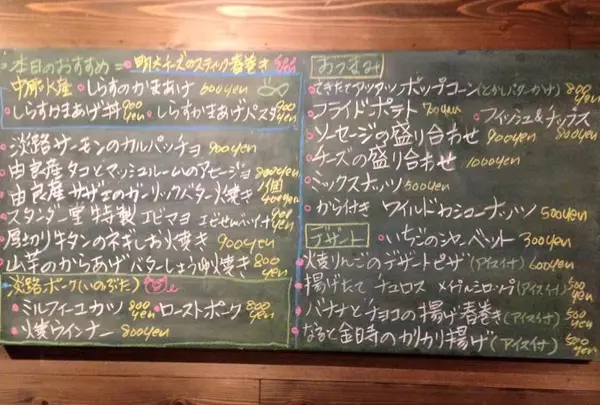 本日のおすすめ = 明太チーズのスティック春巻き
中野水産 しらすのかまあげ 600yen
しらすかまあげ丼 900yen しらすかまあげパスタ 900yen
淡路サーモンのカルパッチョ 900yen
由良産タコとマッシュルームのアヒージョ 800yen
由良産サザエのガーリックバター焼き 1個 400yen
スタンダード堂特製エビマヨ エビせんべい付 yen
厚切り牛タンのネギしお焼き 900yen
山芋のからあげバターしょうゆ焼き 800yen
淡路ポーク(いのぶた)
ミルフィーユカツ 800yen ローストポーク 800yen
焼ウインナー 800yen
おつまみ
できたてアツアツポップコーン(とかしバターかけ) 800yen
フライドポテト 700yen フィッシュ&チップス 800yen
ソーセージの盛り合わせ 900yen
チーズの盛り合わせ 1000yen
ミックスナッツ 500yen
から付き ワイルドカシューナッツ 500yen
デザート いちごのシャーベット 300yen
焼りんごのデザートピザ(アイス付) 600yen
揚げたて チュロス メイプルシロップ(アイス付) 500yen
バナナとチョコの揚げ春巻き(アイス付) 500yen
なると金時のカリカリ揚げ(アイス付) 500yen